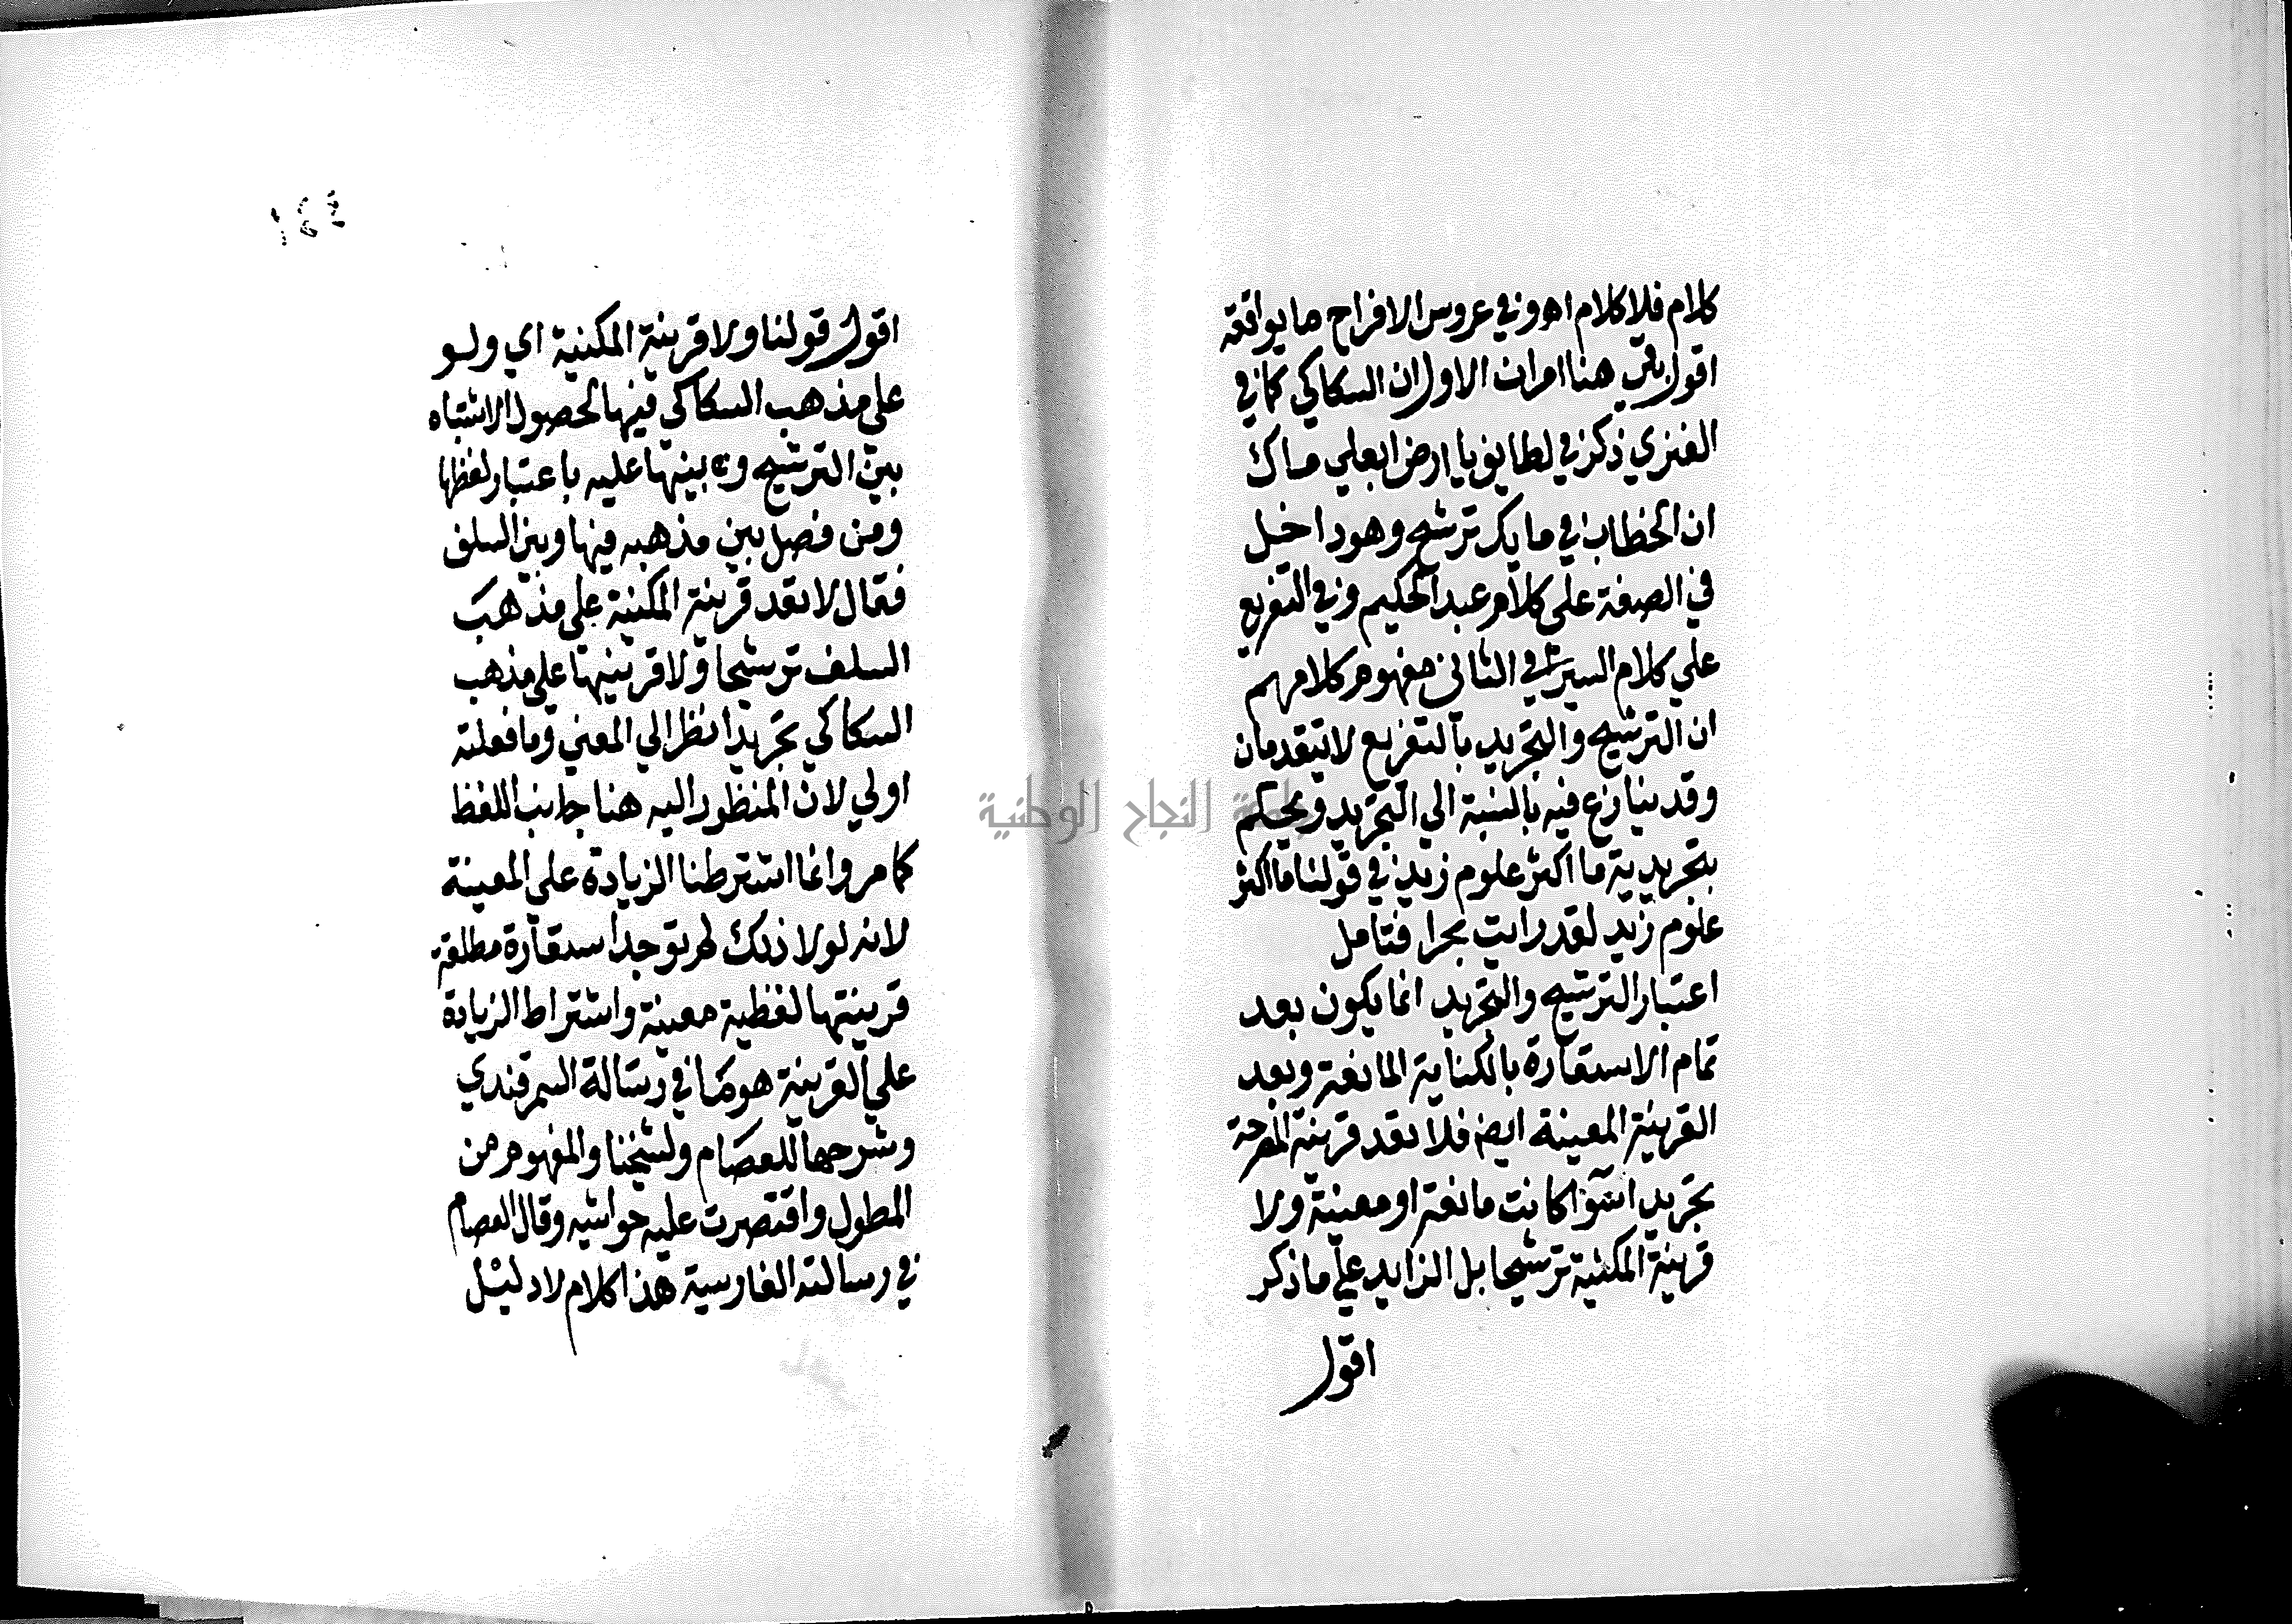 كلام فلا كلام اه وفي عروس الافراح ما يوافقه
اقول بقي هنا امران الاول ان السكاكي كما في
الفنري ذكر في لطايف يا ارض ابلعي ماءك
ان الخطاب في ماءك ترشيح وهو داخل
في الصفة على كلام عبد الحكيم وفي التفريع
علي كلام السير الثاني مفهوم كلامهم
ان الترشيح والتجريد بالتفريع لا يتقدمان
وقد ينازع فيه بالنسبة الي التجريد ويحكم
بتجريدية ما اكثر علوم زيد في قولنا ما اكثر
علوم زيد لقد رايت بحرا فتامل
اعتبار الترشيح والتجريد انما يكون بعد
تمام الاستعارة بالكناية المانعة وبعد
القرينة المعينة ايض فلا تعد قرينة المصرحة
تجريدا سوا كانت مانعة او معينة ولا
قرينة المكنية ترشيحا بل الزايد علي ما ذكر
اقول
١٤٤
اقول قولنا ولا قرينة المكنية اي ولو
علي مذهب السكاكي فيها لحصول الاشتباه
بين الترشيح وبينها عليه باعتبار لفظها
ومن فصل بين مذهبه فيها وبين السلف
فقال لا تعد قرينة المكنية علي مذهب
السلف ترشيحا ولا قرينتها علي مذهب
السكاكي تجريدا نظرا لي المعني وما فعلته
اولي لان المنظور اليه هنا جانب اللفظ
كما مر وانما اشترطنا الزيادة علي المعينة
لانه لولا ذلك لم توجد استعارة مطلقة
قرينتها لفظية معينة واشتراط الزيادة
علي القرينة هو كما في رسالة السمرقندي
وشرحها للعصام ولشيخنا والمفهوم من
المطول واقتصرت عليه حواشيه وقال العصام
في رسالته الفارسية هذا كلام لا دليل
جامعة النجاح الوطنية